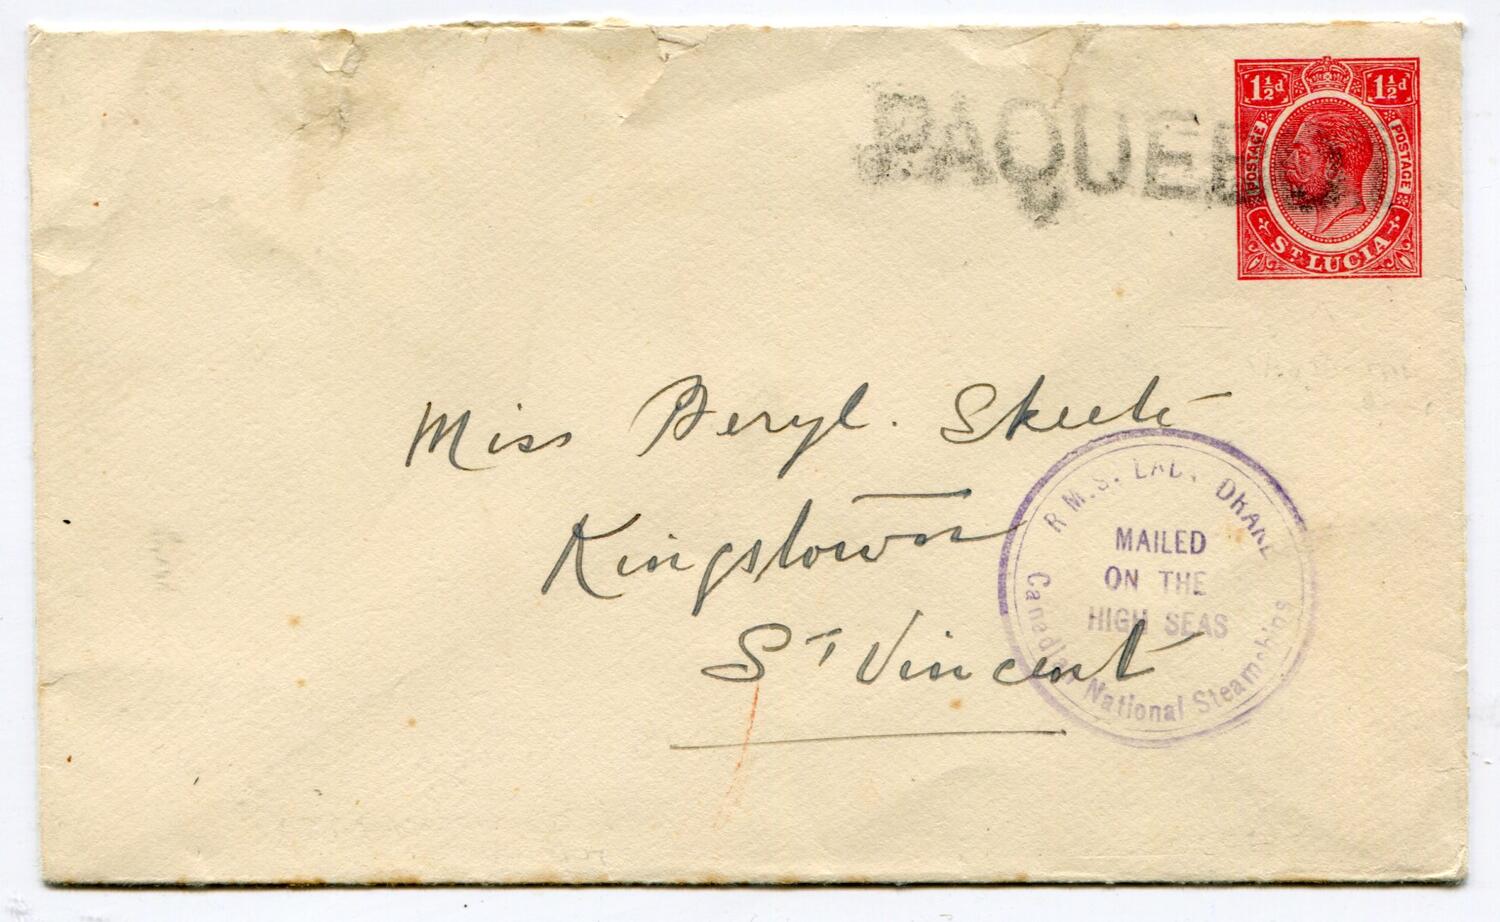 PAQUEBOT
1½d 1½d
POSTAGE POSTAGE
ST. LUCIA
Miss Beryl. Skeete
Kingstown
St Vincent
R.M.S. LADY DRAKE
MAILED
ON THE
HIGH SEAS
Canadian National Steamships